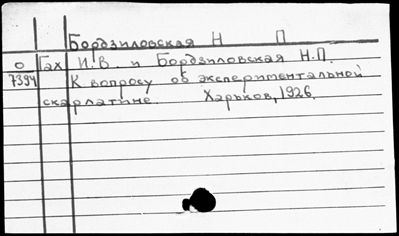 Бордзиловская Н П
О Гах И.В. и Бордзиловская Н.П.
7394 К вопросу об экспериментальной
скарлатине. Харьков, 1926.